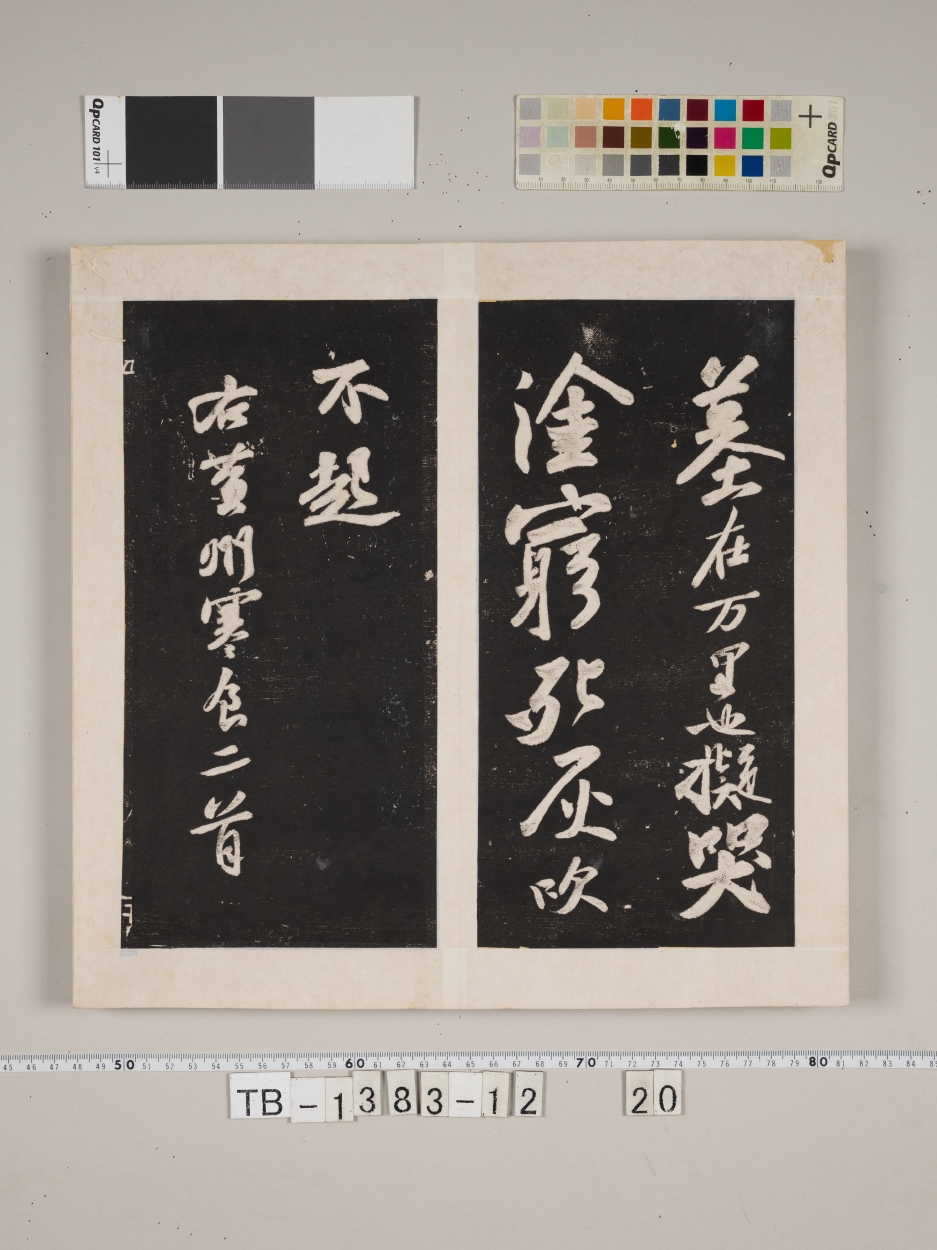 QPCARD 101 v4
QPCARD 201
墓在万里也擬哭
塗窮死灰吹
不起
右黄州寒食二首
45 46 47 48 49 50 51 52 53 54 55 56 57 58 59 60 61 62 63 64 65 66 67 68 69 70 71 72 73 74 75 76 77 78 79 80 81 82 83 84 85
TB-1383-12 20